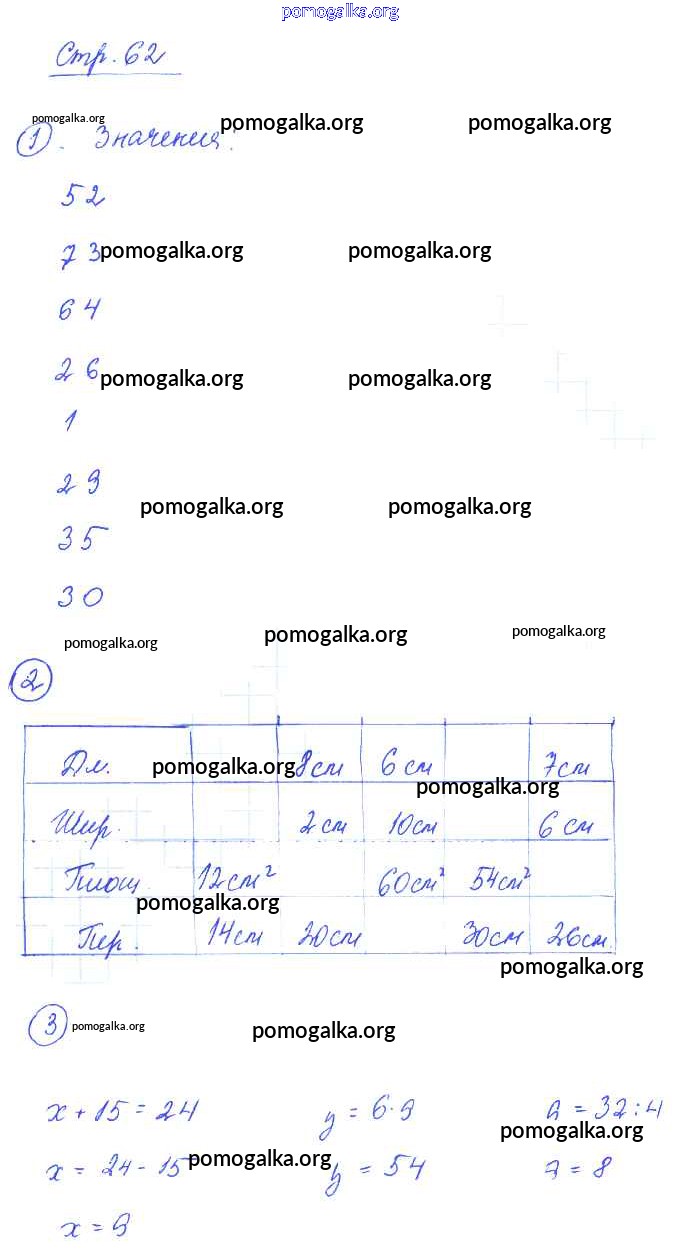 pomogalka.org
Стр. 62
pomogalka.org pomogalka.org pomogalka.org
1. Значения:
52
73 pomogalka.org pomogalka.org
64
26 pomogalka.org pomogalka.org
1
29
pomogalka.org pomogalka.org
35
30
pomogalka.org pomogalka.org pomogalka.org
2
Дл. pomogalka.org 8см 6см 7см
pomogalka.org
Шир. 2см 10см 6см
Площ. 12см² 60см² 54см²
pomogalka.org
Пер. 14см 20см 30см 26см
pomogalka.org
3 pomogalka.org pomogalka.org
x + 15 = 24 y = 6·9 = 32:4
pomogalka.org
x = 24 - 15 pomogalka.org y = 54 = 8
x = 9